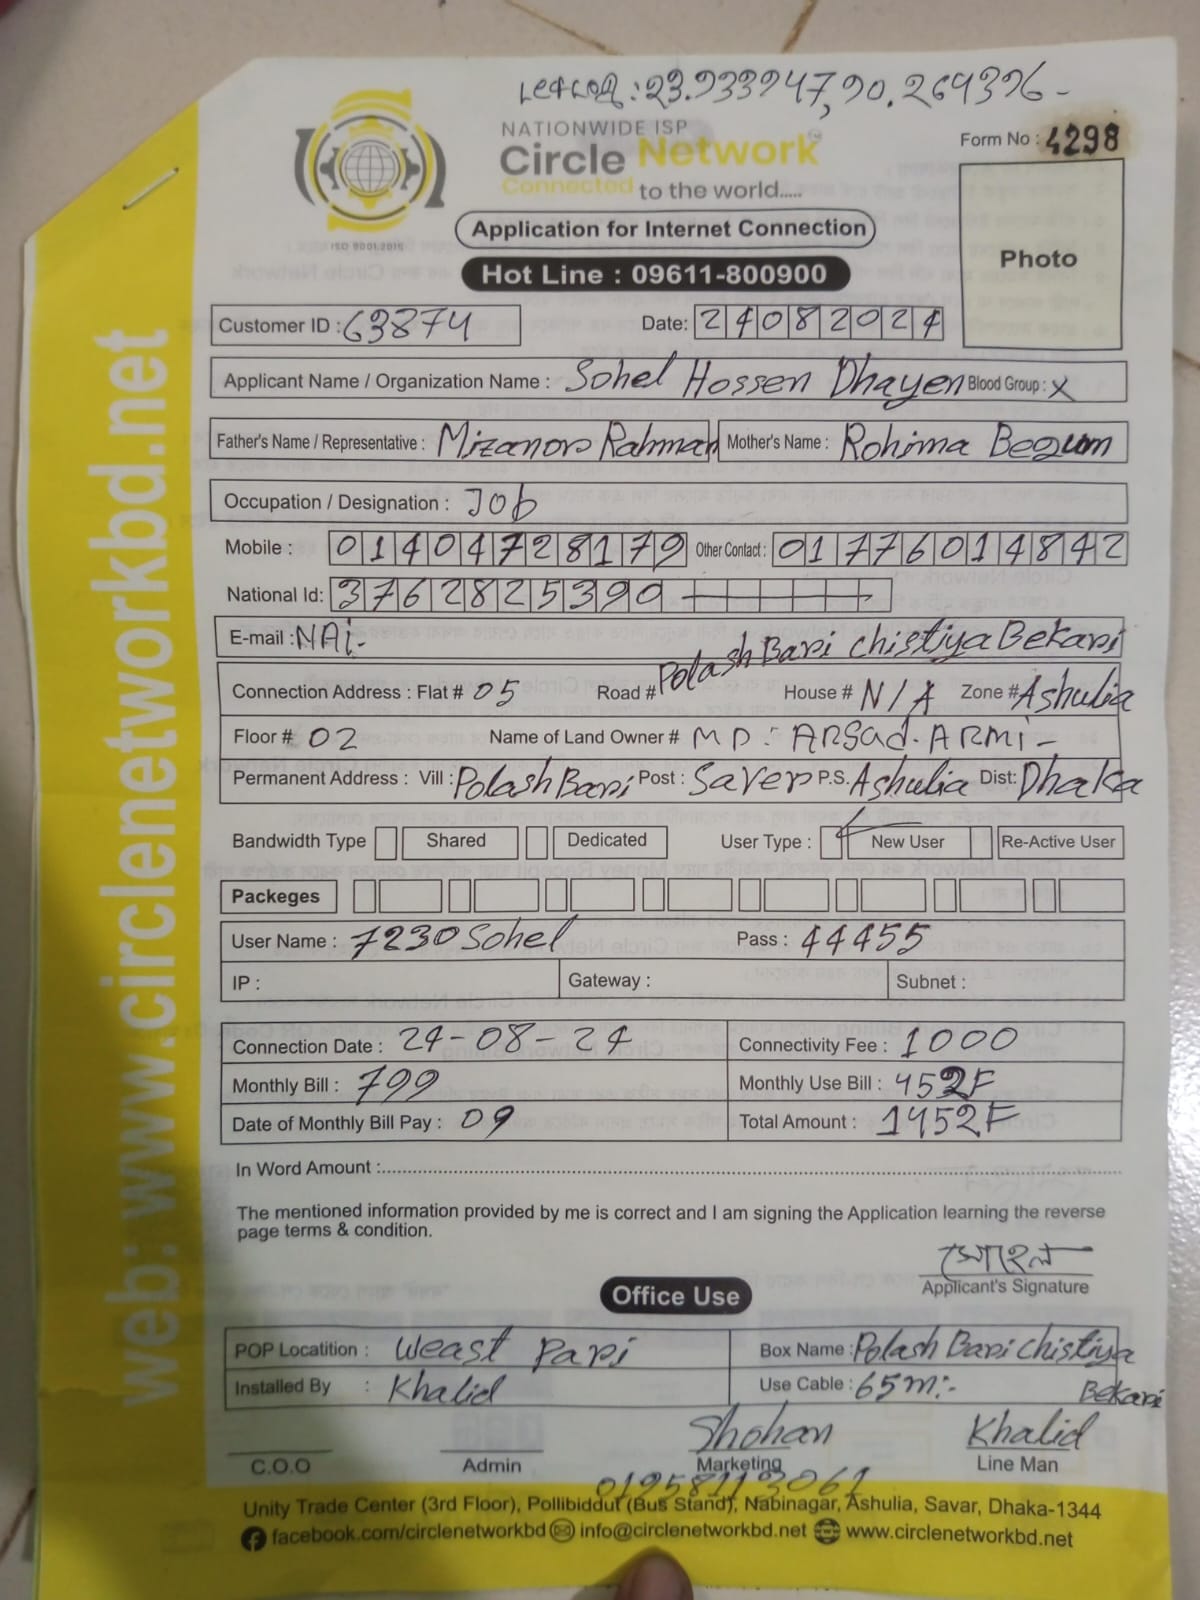 23.933947, 90.264396-
NATIONWIDE ISP
Circle Network™
Connected to the world.....
ISO 9001:2015
Form No : 4298
Application for Internet Connection
Photo
Hot Line : 09611-800900
Customer ID : 63874 Date: 24082024
Applicant Name / Organization Name : Sohel Hossen Dhayen Blood Group : X
Father's Name / Representative : Mizanor Rahman Mother's Name : Rohima Begum
Occupation / Designation : Job
Mobile : 01404728179 Other Contact : 01776014842
National Id: 3762825390
E-mail : NAi-
Polash Bari Chistiya Bekari
Connection Address : Flat # 05 Road # House # N/A Zone # Ashulia
Floor # 02 Name of Land Owner # MD: ARSad. ARMi-
Permanent Address : Vill : Polash Bari Post : Saver P.S. Ashulia Dist: Dhaka
Bandwidth Type Shared Dedicated User Type : New User Re-Active User
Packeges
User Name : 7230Sohel Pass : 44455
IP : Gateway : Subnet :
Connection Date : 24-08-24 Connectivity Fee : 1000
Monthly Bill : 799 Monthly Use Bill : 452F
Date of Monthly Bill Pay : 09 Total Amount : 1452F
In Word Amount :
The mentioned information provided by me is correct and I am signing the Application learning the reverse
page terms & condition.
সোহেল
Applicant's Signature
Office Use
POP Locatition : Weast Pari Box Name : Polash Bari Chistiya
Bekari
Installed By : Khalid Use Cable : 65m:-
Shohan Khalid
C.O.O Admin Marketing Line Man
01958113061
Unity Trade Center (3rd Floor), Pollibiddut (Bus Stand), Nabinagar, Ashulia, Savar, Dhaka-1344
facebook.com/circlenetworkbd info@circlenetworkbd.net www.circlenetworkbd.net
web: www.circlenetworkbd.net